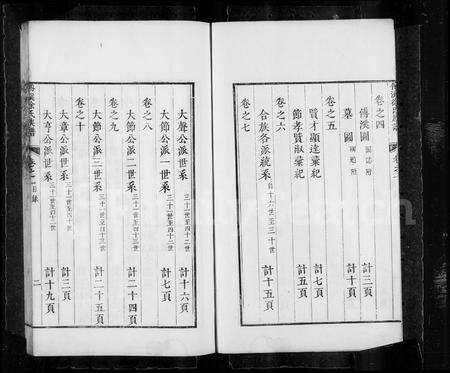 卷之四
傳溪圖 圖誌附 計三頁
墓圖 圖贈附 計十頁
卷之五
賢才顯達彙紀 計七頁
節孝賢淑彙紀 計五頁
卷之六
合族各派統系 自十六世至三十世 計十五頁
卷之七
大聲公派世系 三十一世至四十二世 計十六頁
卷之八
大節公派一世系 三十一世至四十二世 計七頁
大節公派二世系 三十一世至四十三世 計二十四頁
卷之九
大節公派三世系 三十一世至四十三世 計二十五頁
卷之十
大章公派世系 三十一世至四十世 計三頁
大亨公派世系 三十一世至四十二世 計十九頁
卷之一 目錄 二